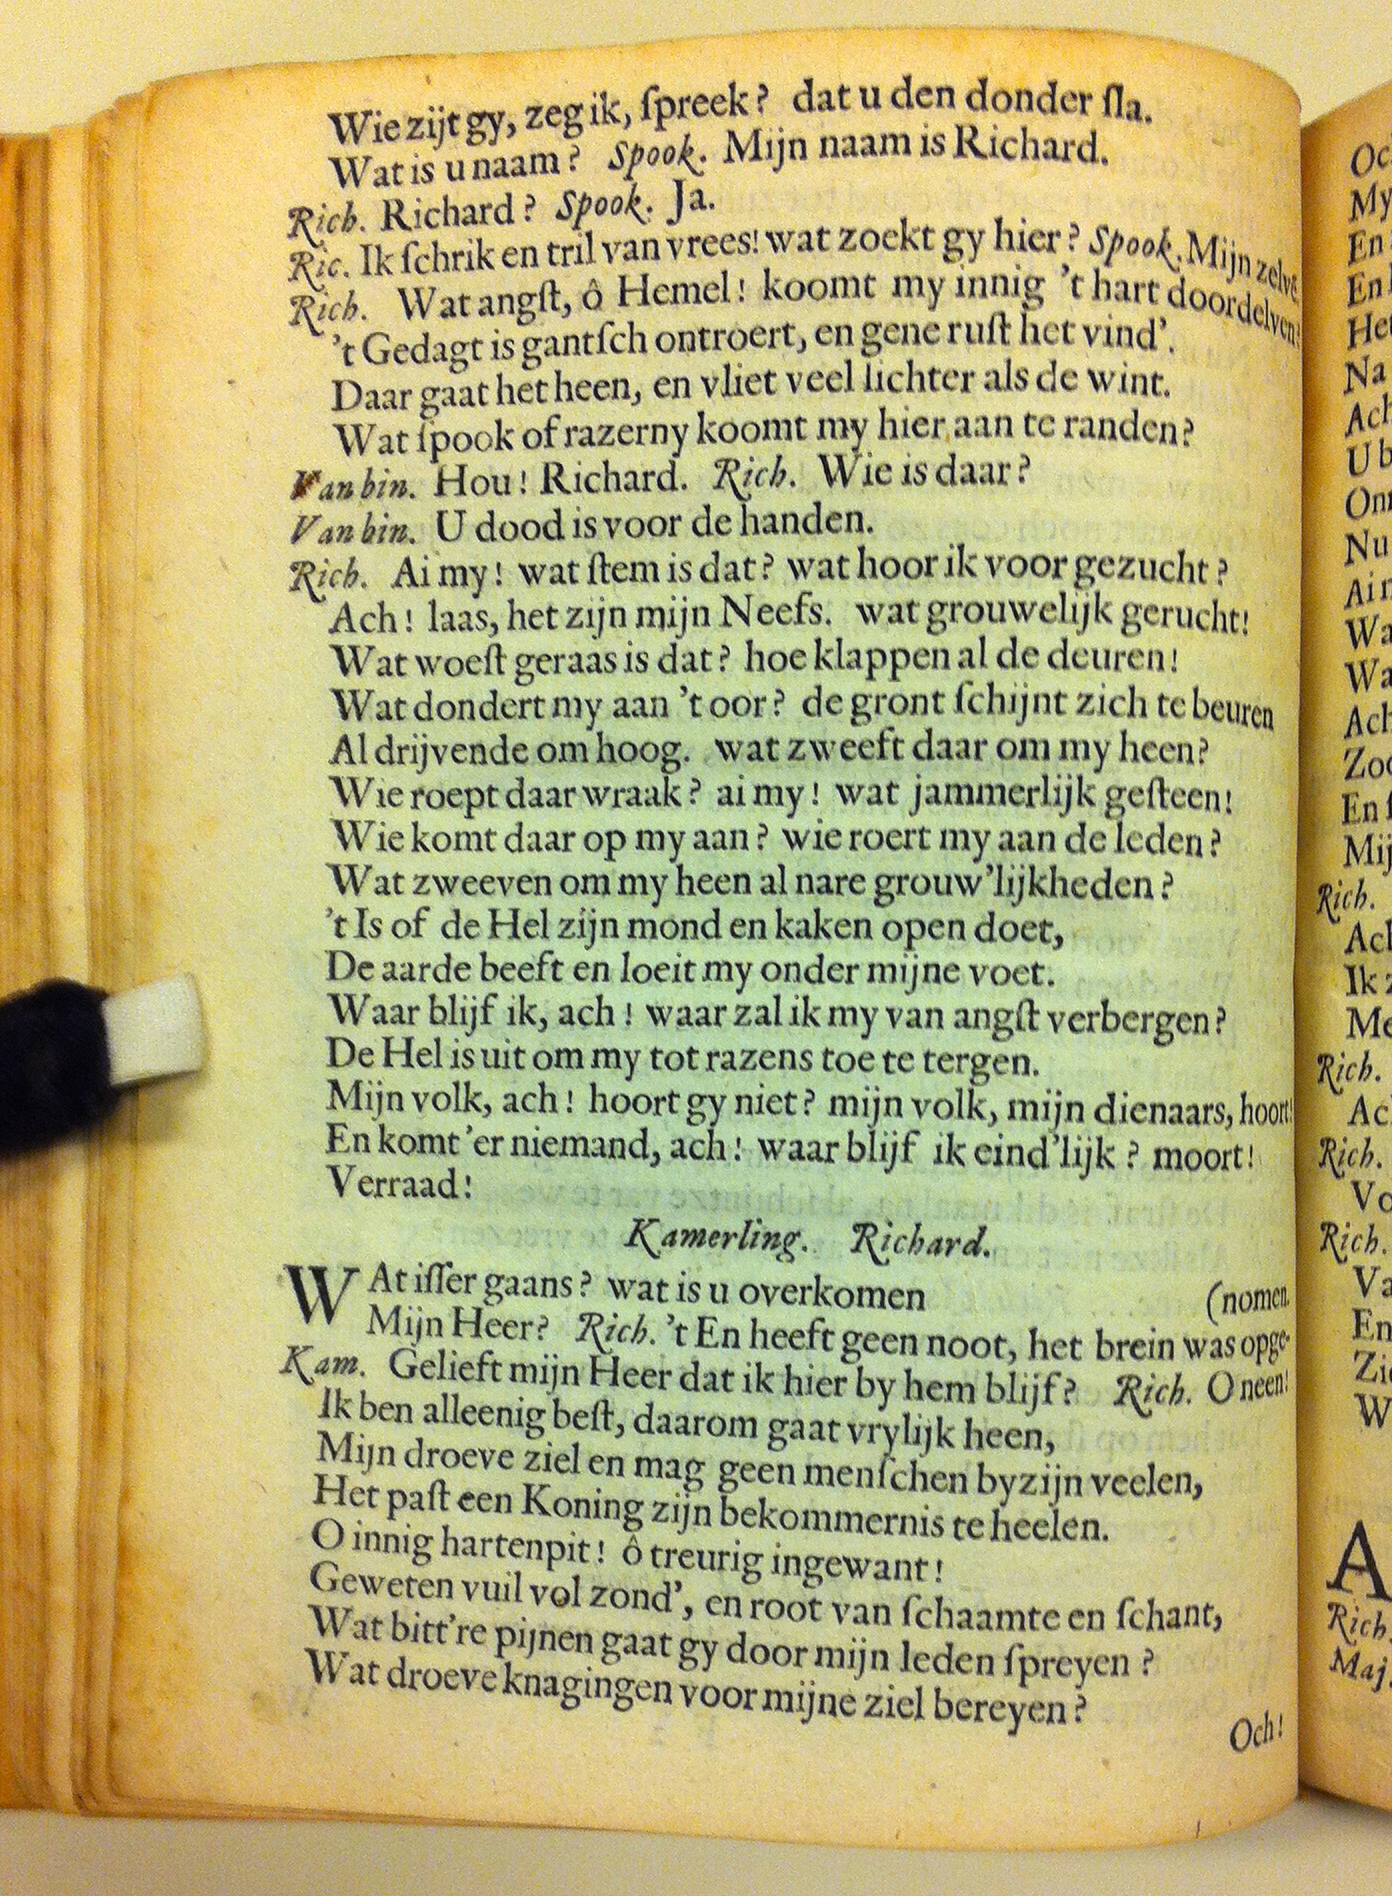 Wie zijt gy, zeg ik, ſpreek? dat u den donder ſla.
Wat is u naam? Spook. Mijn naam is Richard.
Rich. Richard? Spook. Ja.
Ric. Ik ſchrik en tril van vrees! wat zoekt gy hier? Spook. Mijn zelve.
Rich. Wat angſt, ô Hemel! koomt my innig 't hart doordelven?
't Gedagt is gantſch ontroert, en gene ruſt het vind'.
Daar gaat het heen, en vliet veel lichter als de wint.
Wat ſpook of razerny koomt my hier aan te randen?
Van bin. Hou! Richard. Rich. Wie is daar?
Van bin. U dood is voor de handen.
Rich. Ai my! wat ſtem is dat? wat hoor ik voor gezucht?
Ach! laas, het zijn mijn Neefs. wat grouwelijk gerucht!
Wat woeſt geraas is dat? hoe klappen al de deuren!
Wat dondert my aan 't oor? de gront ſchijnt zich te beuren
Al drijvende om hoog. wat zweeft daar om my heen?
Wie roept daar wraak? ai my! wat jammerlijk geſteen!
Wie komt daar op my aan? wie roert my aan de leden?
Wat zweeven om my heen al nare grouw'lijkheden?
't Is of de Hel zijn mond en kaken open doet,
De aarde beeft en loeit my onder mijne voet.
Waar blijf ik, ach! waar zal ik my van angſt verbergen?
De Hel is uit om my tot razens toe te tergen.
Mijn volk, ach! hoort gy niet? mijn volk, mijn dienaars, hoort!
En komt 'er niemand, ach! waar blijf ik eind'lijk? moort!
Verraad!
Kamerling. Richard.
WAt iſſer gaans? wat is u overkomen
(nomen.
Mijn Heer? Rich. 't En heeft geen noot, het brein was opge-
Kam. Gelieft mijn Heer dat ik hier by hem blijf? Rich. O neen!
Ik ben alleenig beſt, daarom gaat vrylijk heen,
Mijn droeve ziel en mag geen menſchen byzijn veelen,
Het paſt een Koning zijn bekommernis te heelen.
O innig hartenpit! ô treurig ingewant!
Geweten vuil vol zond', en root van ſchaamte en ſchant,
Wat bitt're pijnen gaat gy door mijn leden ſpreyen?
Wat droeve knagingen voor mijne ziel bereyen?
Och!
Oc
My
En
En
Het
Na
Ach
U b
Nu
Wa
Wa
Ach
Zoo
En
Mij
Rich.
Ach
Ik
Me
Rich.
Ac
Rich.
Vo
Rich.
Va
En
Zi
W
A
Rich.
Maj.